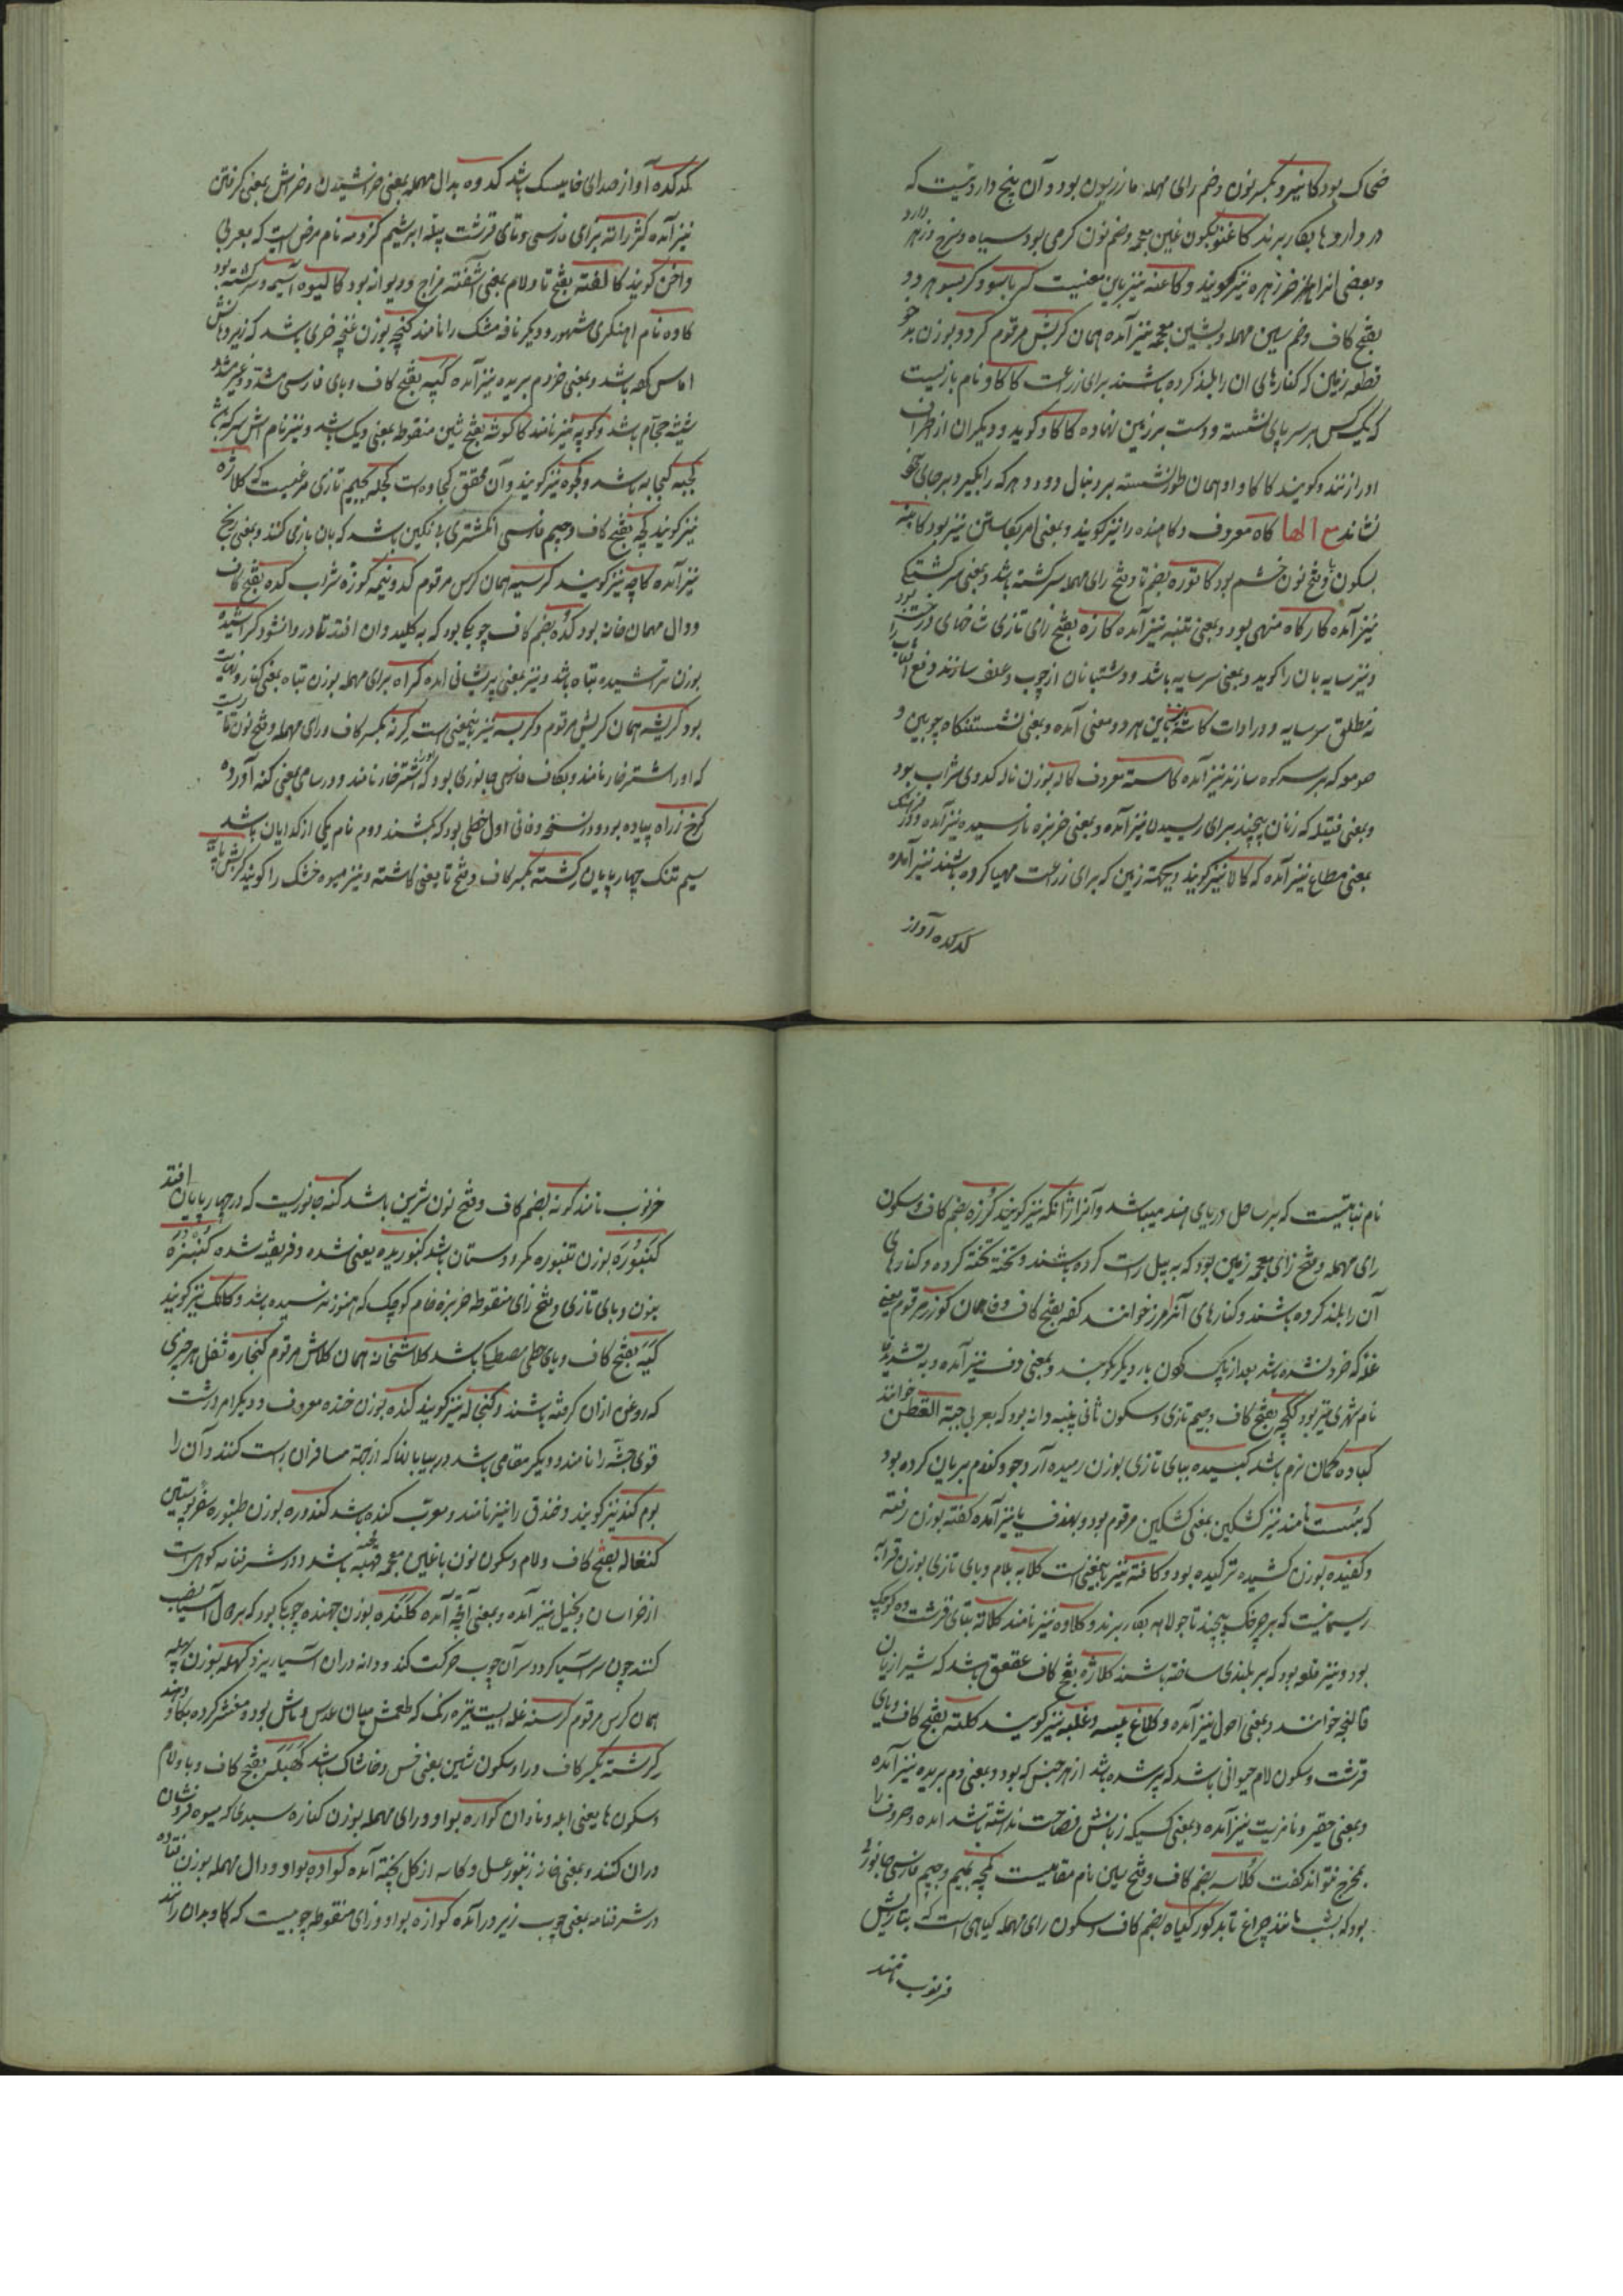 ضحاک بود کانیرو بکسر نون و ضم رای مهمله مازریون بود و آن بیخ داروئیست که
در داروها بکار برند کاغنو بسکون غین معجمه و ضم نون کرمی بود سیاه و سرخ و زهر دارد
و بعضی انرا خرزهره نیز گویند و کاغنه نیز باین معنیست کرباسو و کربسو هر دو
بفتح کاف و ضم سین مهمله و بشین معجمه نیز آمده همان کربش مرقوم کردو بوزن بدخو
قطعه زمین که کنارهای ان را بلند کرده باشند برای زراعت کاکاو نام بازیست
که یک کس بر سر پای نشسته و دست بر زمین نهاده کاکاو گوید و دیگران از اطراف
او را زنند و گویند کاکاو او همان طور نشسته بر دنبال دود و هر که را بگیرد بر جای خود
نشاند مع الها کاه معروف و کاهنده را نیز گویند و بمعنی امر بکاستن نیز بود کابینه
بسکون با و فتح نون خشم بود کاتوره بضم تا و فتح رای مهمله سرگشته باشد و بمعنی سرگشتگی
نیز آمده کارکاه منهی بود و بمعنی تنبیه نیز آمده کازه بفتح زای تازی شاخهای درخت بود
و نیز سایه بان را گویند و بمعنی سرسایه باشد و دشتبانان از چوب و علف سازند دفع آفتاب را
نه مطلق سرسایه و در ادات کاشه نیز باین هر دو معنی آمده و بمعنی نشستنگاه چوبین و
صومعه که بر سر کوه سازند نیز آمده کاسته معروف کاله بوزن ناله کدوی شراب بود
و بمعنی فتیله که زنان پیچند برای ریسیدن نیز آمده و بمعنی خربزه نارسیده نیز آمده و در فرهنگ
بمعنی مطاع نیز آمده که کالا نیز گویند و یک تخته زمین که برای زراعت مهیا کرده باشند نیز آمده
کدکده آواز
کدکده آواز صدای باشد کدوه بدال مهمله بمعنی خراشیدن و خراش بمعنی گرفتن
نیز آمده برای فارسی و تای قرشت پیله ابریشم کزومه نام مرض است که بعربی
گویند کالفته بفتح تا و لام بمعنی آشفته مزاج و دیوانه بود کالیوه آسیمه و سرگشته بود
کاوه نام اهنگری مشهور و دیگر نافه مشک را نامند کنچه بوزن غنچه خری باشد که زیر دهانش
اماس کرده باشد و بمعنی خر دم بریده نیز آمده کپه بفتح کاف و بای فارسی مشدد و غیر مشدد
شیشه حجام باشد و کوپه نیز نامند کاکوشه بفتح شین منقوطه بمعنی دیک باشد و نیز نام اش سرکه باشد
کجبه کجابه باشد و کجوه نیز گویند و آن محقق کجاوه است کجله بجیم تازی مرغیست که کلاژه
نیز گویند کچه بفتح کاف و جیم فارسی انگشتری بی نگین باشد که بان بازی کنند و بمعنی زنخ
نیز آمده کاچه نیز گویند کرسه همان کرس مرقوم کدونیمه کوزه شراب کده بفتح کاف
و دال مهمان خانه بود کده بضم کاف چوبکی بود که به کلیدان افتد تا در وا نشود کراشیده
بوزن تراشیده تباه باشد و نیز بمعنی پریشانی امده کراه برای مهمله بوزن تباه بمعنی کنار و نهایت
بود کربشه همان کربش مرقوم و کربسه نیز باینمعنی است کرنه بکسر کاف و رای مهمله و فتح نون
که اورا شترخار نامند و بکاف فارسی جانوری بود که شترخار نامند و در سامی بمعنی کنه آورده
کرخ زراه پیاده بود و در نسخه وفائی اول خطی بود که کشند دوم نام یکی از گدایان باشد
سیم تنک چهارپایان کشته بکسر کاف و فتح تا بمعنی کاشته و نیز میوه خشک را گویند
نام نباتیست که بر ساحل دریای هند میباشد و آنرا نیز گویند کرزه بضم کاف و سکون
رای مهمله و فتح زای معجمه زمین بود که به بیل راست کرده باشند و تخته تخته کرده و کنارهای
آن را بلند کرده باشند و کنارهای آنرا مرز خوانند کفه بفتح کاف و فا همان کوزر مرقوم یعنی
غله که خرد نشده باشد بعد از پاک کردن بار دیگر کوبند و بمعنی دف نیز آمده و به تشدید فا
نام شهری نیز بود ککجه بفتح کاف و جیم تازی و سکون ثانی پنبه دانه بود که بعربی حبة القطن خوانند
کباده کمان نرم باشد کبیده ببای تازی بوزن رسیده آرد جو و گندم بریان کرده بود
که بست نامند نیز کشکین بمعنی کشکین مرقوم بود و بحذف یا نیز آمده کفته بوزن رفته
و کفیده بوزن کشیده ترکیده بود و کافته نیز باینمعنی است کلابه بلام و بای تازی بوزن قرابه
ریسمانیست که بر چرخک پیچند تا جولاهه بکار برند و کلاوه نیز نامند کلاته بتای قرشت ده کوچک
بود و نیز قلعه بود که بر بلندی ساخته باشند کلاژه بفتح کاف عقعق باشد که شیرازیان
قالنجه خوانند و بمعنی احول نیز آمده و کلاغ پیسه و غلبه نیز گویند کلته بفتح کاف و تای
قرشت و سکون لام حیوانی باشد که پیر شده باشد از هر جنس که بود و بمعنی دم بریده نیز آمده
و بمعنی حقیر و نامربت نیز آمده و بمعنی کسیکه زبانش فصاحت نداشته باشد امده و حروف را
بمخرج نتواند گفت کلاسه بضم کاف و فتح سین نام مقامیست کمچه بمیم و جیم فارسی جانوری
بود که بشب مانند چراغ تابد کورکیاه بضم کاف و سکون رای مهمله گیاهی است که بتازیش
خرنوب نامند
خرنوب نامند کونه بضم کاف و فتح نون سرین باشد کنه جانوریست که در چهارپایان افتد
کنبوره بوزن تنبوره مکر و دستان باشد کنبوریده یعنی شده و فریفته شده کنبزه
بنون و بای تازی و فتح زای منقوطه خربزه خام کوچک که هنوز نرسیده باشد و کالک نیز گویند
کیه بفتح کاف و یای حطی مصطکی باشد کلاشخانه همان کلاش مرقوم کنجاره ثفل هر چیزی
که روغن ازان گرفته باشند و کنجاله نیز گویند کنده بوزن خنده معروف و دیگر امرد درشت
قوی جثه را نامند و دیگر مقامی باشد در بیابانها که از جهة مسافران راست کنند و آن را
بوم کند نیز گویند و خندق را نیز نامند و معرب کنده باشد کندوره بوزن طنبوره سفره پوستین
کنغاله بفتح کاف و لام و سکون نون با غین معجمه قحبه باشد و در شرفنامه کوهیست
از خراسان و بخیل نیز آمده و بمعنی آنچه آمده کلنده بوزن جهنده چوبکی بود که بر دول آسیا نصب
کنند چون سر آسیا گردد سر آن چوب حرکت کند و دانه دران آسیا ریزد کهله بوزن پهله
همان کرس مرقوم کرسنه غله ایست تیره رنگ که طعمش میان عدس و ماش بود و مقشر کرده بگاو دهند
کرشته بکسر کاف و را و سکون شین بمعنی خس و خاشاک باشد کهبله بفتح کاف و با و لام
و سکون ها یعنی ابله و نادان کواره بواو و رای مهمله بوزن کناره سبدی که میوه فروشان
دران کنند و بمعنی خانه زنبور عسل و کاسه از گل پخته آمده کواده بواو و دال مهمله بوزن فتاده
در شرفنامه بمعنی چوب زیر در آمده کوازه بواو و زای منقوطه چوبیست که گاو بدان رانند